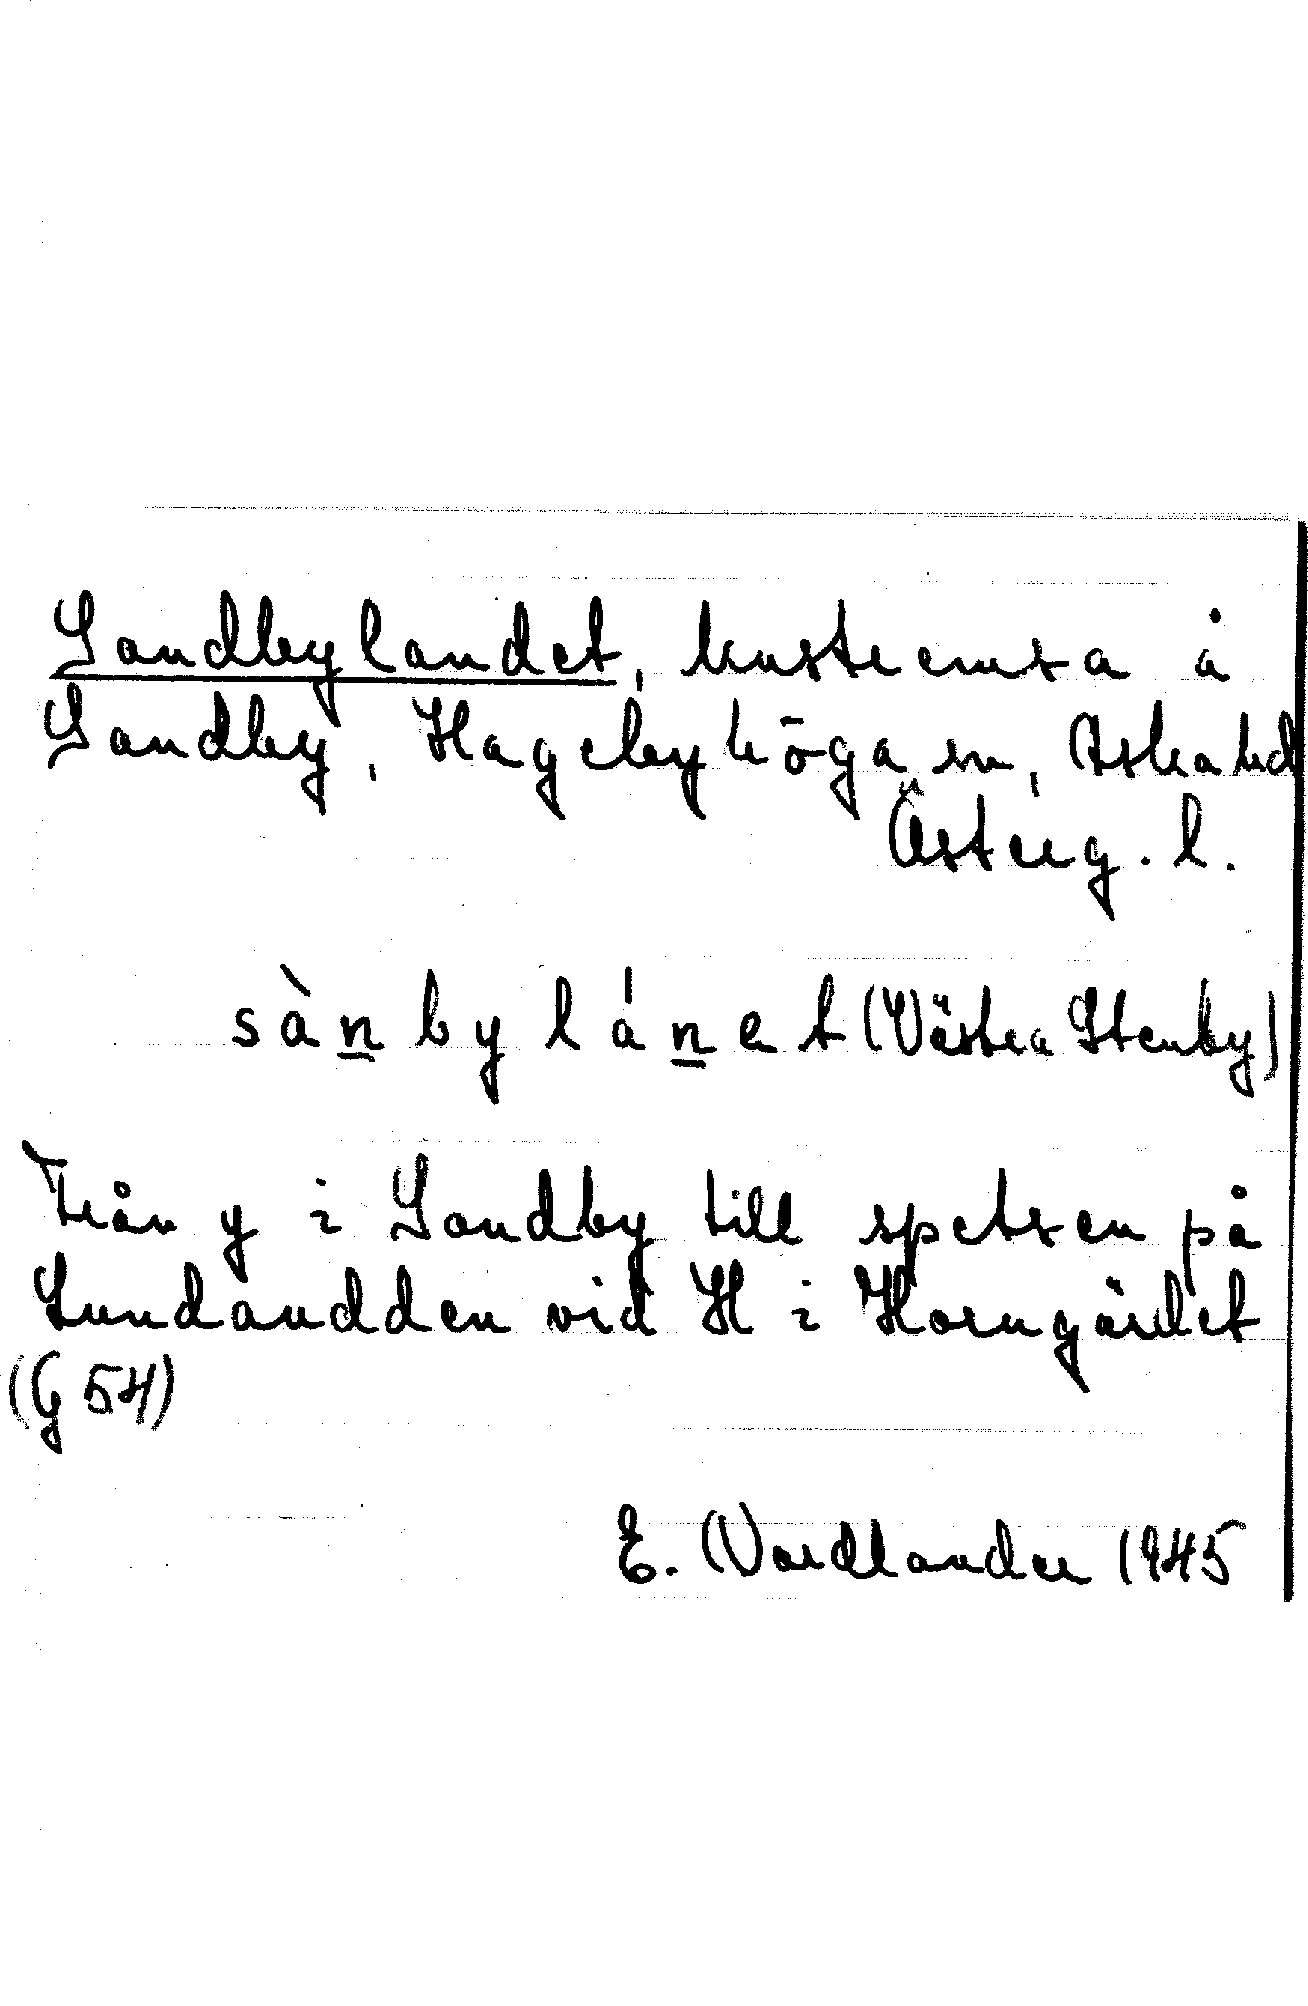 Sandbylandet, kustremsa å
Sandby, Hagebyhöga sn, Aska hd
Österg. l.
sànbylánet (Västra Stenby)
Från y i Sandby till spetsen på
Lundaudden vid H i Horngärdet
(G 54)
E. Nordlander 1945